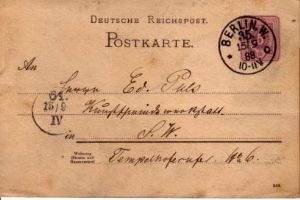 DEUTSCHE REICHSPOST.
POSTKARTE.
BERLIN, W.
35.
15/9
88
10-11 V
An
Herrn Ed. Puls
Kunstschmiedewerkstatt
in S. W.
Wohnung
(Strasse und
Hausnummer)
Tempelhoferufer No 6.
15/9
IV